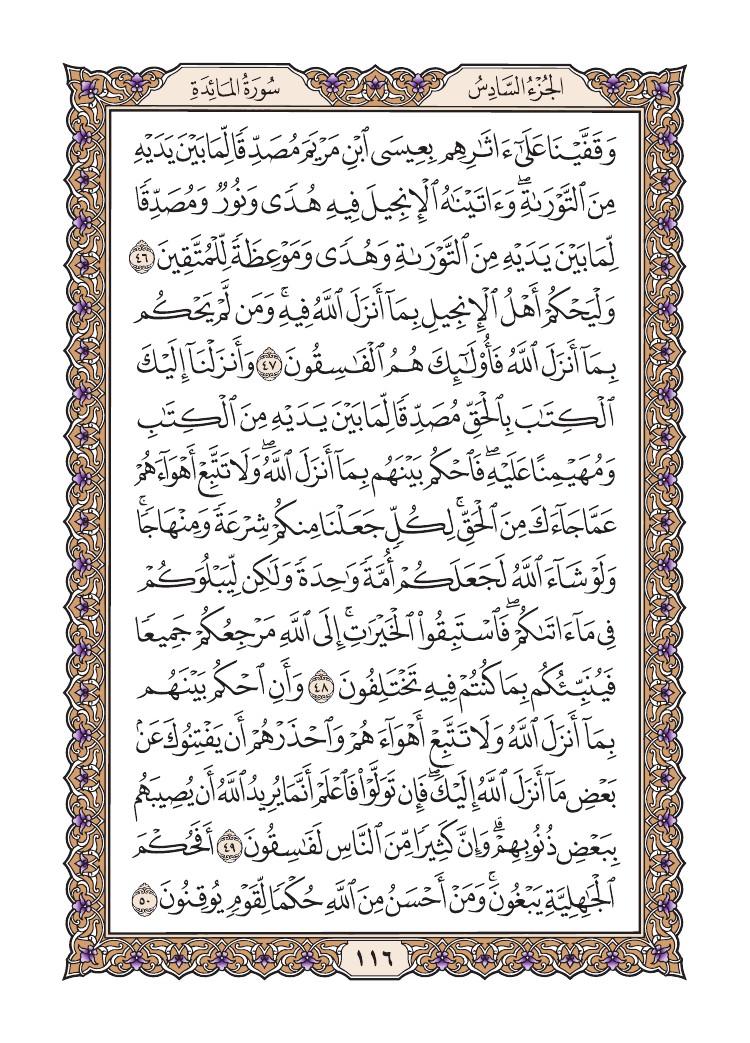 الجُزْءُ السَّادِسُ
سُورَةُ المَائِدَةِ
وَقَفَّيْنَا عَلَىٰٓ ءَاثَٰرِهِم بِعِيسَى ٱبْنِ مَرْيَمَ مُصَدِّقًا لِّمَا بَيْنَ يَدَيْهِ
مِنَ ٱلتَّوْرَىٰةِ ۖ وَءَاتَيْنَٰهُ ٱلْإِنجِيلَ فِيهِ هُدًى وَنُورٌ وَمُصَدِّقًا
لِّمَا بَيْنَ يَدَيْهِ مِنَ ٱلتَّوْرَىٰةِ وَهُدًى وَمَوْعِظَةً لِّلْمُتَّقِينَ ٤٦
وَلْيَحْكُمْ أَهْلُ ٱلْإِنجِيلِ بِمَآ أَنزَلَ ٱللَّهُ فِيهِ ۚ وَمَن لَّمْ يَحْكُم
بِمَآ أَنزَلَ ٱللَّهُ فَأُو۟لَٰٓئِكَ هُمُ ٱلْفَٰسِقُونَ ٤٧ وَأَنزَلْنَآ إِلَيْكَ
ٱلْكِتَٰبَ بِٱلْحَقِّ مُصَدِّقًا لِّمَا بَيْنَ يَدَيْهِ مِنَ ٱلْكِتَٰبِ
وَمُهَيْمِنًا عَلَيْهِ ۖ فَٱحْكُم بَيْنَهُم بِمَآ أَنزَلَ ٱللَّهُ ۖ وَلَا تَتَّبِعْ أَهْوَآءَهُمْ
عَمَّا جَآءَكَ مِنَ ٱلْحَقِّ ۚ لِكُلٍّ جَعَلْنَا مِنكُمْ شِرْعَةً وَمِنْهَاجًا ۚ
وَلَوْ شَآءَ ٱللَّهُ لَجَعَلَكُمْ أُمَّةً وَٰحِدَةً وَلَٰكِن لِّيَبْلُوَكُمْ
فِى مَآ ءَاتَىٰكُمْ ۖ فَٱسْتَبِقُوا۟ ٱلْخَيْرَٰتِ ۚ إِلَى ٱللَّهِ مَرْجِعُكُمْ جَمِيعًا
فَيُنَبِّئُكُم بِمَا كُنتُمْ فِيهِ تَخْتَلِفُونَ ٤٨ وَأَنِ ٱحْكُم بَيْنَهُم
بِمَآ أَنزَلَ ٱللَّهُ وَلَا تَتَّبِعْ أَهْوَآءَهُمْ وَٱحْذَرْهُمْ أَن يَفْتِنُوكَ عَنۢ
بَعْضِ مَآ أَنزَلَ ٱللَّهُ إِلَيْكَ ۖ فَإِن تَوَلَّوْا۟ فَٱعْلَمْ أَنَّمَا يُرِيدُ ٱللَّهُ أَن يُصِيبَهُم
بِبَعْضِ ذُنُوبِهِمْ ۗ وَإِنَّ كَثِيرًا مِّنَ ٱلنَّاسِ لَفَٰسِقُونَ ٤٩ أَفَحُكْمَ
ٱلْجَٰهِلِيَّةِ يَبْغُونَ ۚ وَمَنْ أَحْسَنُ مِنَ ٱللَّهِ حُكْمًا لِّقَوْمٍ يُوقِنُونَ ٥٠
١١٦